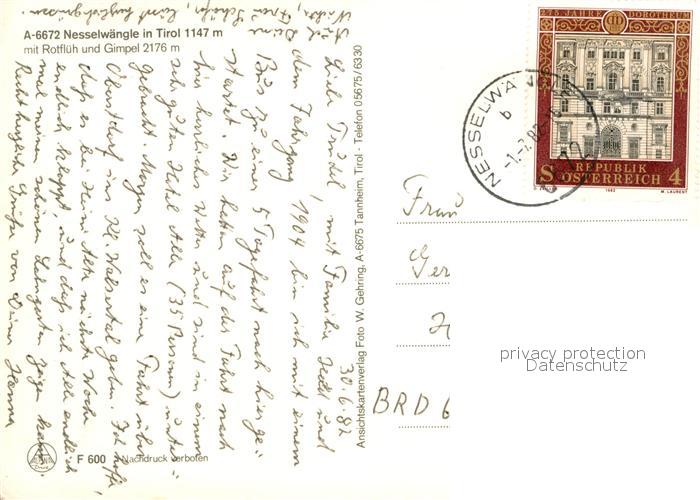 A-6672 Nesselwängle in Tirol 1147 m
mit Rotflüh und Gimpel 2176 m
30.6.82
Liebe Trudel mit Familie und
dem Jahrgang 1904 bin ich mit einem
Bus zu einer 5 Tagefahrt nach hier ge-
startet. Wir hatten auf der Fahrt nach
hier herrliches Wetter und sind in einem
sehr guten Hotel Alle (35 Personen) unter-
gebracht. Morgen soll es eine Fahrt über
Oberstdorf ins Kl. Walsertal geben. Ich hoffe,
daß es bei Deinen Alten nächste Woche
endlich klappt, und daß ich Alle endlich
mal meinen schönen Garten zeigen kann.
Recht herzliche Grüße von Deiner Hanna
Auch Deine
F 600
Nachdruck verboten
Ansichtskartenverlag Foto W. Gehring, A-6675 Tannheim, Tirol - Telefon 05675/6330
275 JAHRE DOROTHEUM
REPUBLIK
S ÖSTERREICH 4
1982
M. LAURENT
NESSELWÄ
b
-1.-7.82-
Frau
Ger
BRD 6
privacy protection
Datenschutz